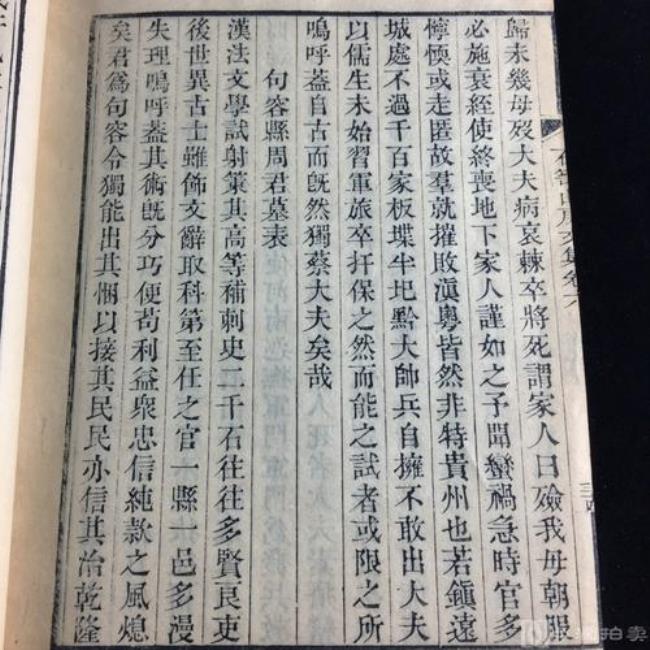 歸未幾母歿大夫病哀棘卒將死謂家人曰殮我毋朝服
必施衰絰使終喪地下家人謹如之予聞蠻禍急時官多
懧愞或走匿故羣就摧敗滇粵皆然非特貴州也若鎮遠
城處不過千百家板堞半圯黔大帥兵自擁不敢出大夫
以儒生未始習軍旅卒扞保之然而能之試者或限之所
嗚呼蓋自古而旣然獨蔡大夫矣哉
句容縣周君墓表
漢法文學試射策其高等補刺史二千石往往多賢良吏
後世異古士雖飾文辭取科第至任之官一縣一邑多漫
失理嗚呼蓋其術旣分巧便苟利益衆忠信純款之風熄
矣君爲句容令獨能出其悃以接其民民亦信其治乾隆